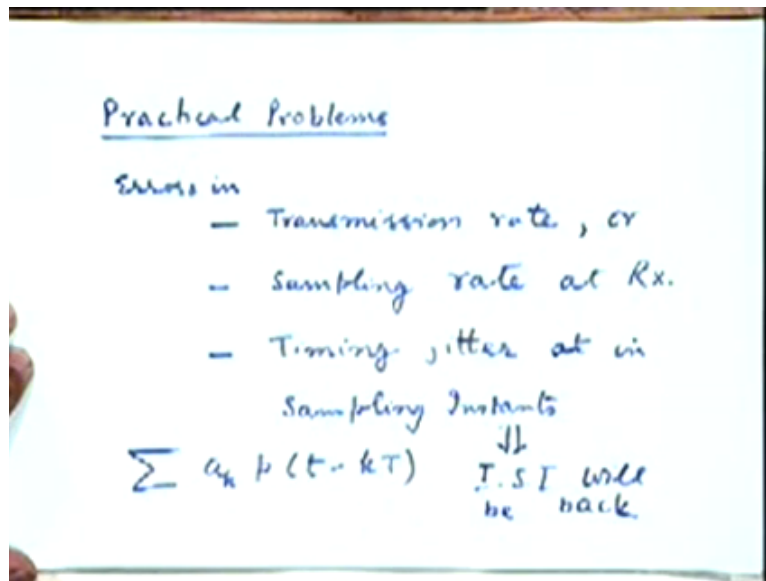 Practical Problems
Errors in
– Transmission rate, or
– Sampling rate at Rx.
– Timing jitter at in
Sampling Instants
⇓
∑ aₖ p(t-kT) I.S I will
be back